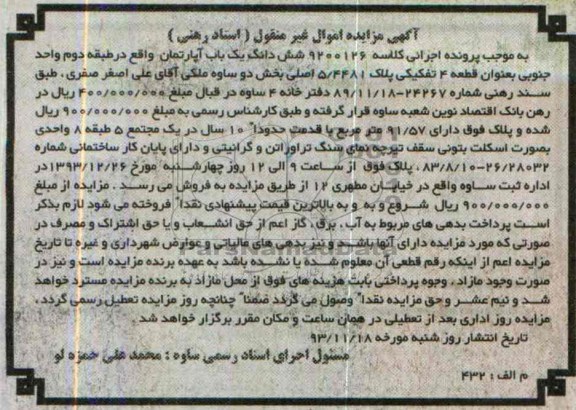 آگهی مزایده اموال غیر منقول ( اسناد رهنی )
به موجب پرونده اجرائی کلاسه ۹۲۰۰۱۲۶ شش دانگ یک باب آپارتمان واقع درطبقه دوم واحد
جنوبی بعنوان قطعه ۴ تفکیکی پلاک ۵/۴۴۸۱ اصلی بخش دو ساوه ملکی آقای علی اصغر صفری . طبق
سند رهنی شماره ۲۴۲۶۷-۸۹/۱۱/۱۸ دفتر خانه ۴ ساوه در قبال مبلغ ۴۰۰/۰۰۰/۰۰۰ ریال در
رهن بانک اقتصاد نوین شعبه ساوه قرار گرفته و طبق کارشناس رسمی به مبلغ ۹۰۰/۰۰۰/۰۰۰ ریال
شده و پلاک فوق دارای ۹۱/۵۷ متر مربع با قدمت حدوداً ۱۰ سال در یک مجتمع ۵ طبقه ۸ واحدی
بصورت اسکلت بتونی سقف تیرچه نمای سنگ تراورتن و گرانیتی و دارای پایان کار ساختمانی شماره
۲۶/۲۸۰۳۲-۸۳/۸/۱۰ . پلاک فوق از ساعت ۹ الی ۱۲ روز چهارشنبه مورخ ۱۳۹۳/۱۲/۲۶در
اداره ثبت ساوه واقع در خیابان مطهری ۱۲ از طریق مزایده به فروش می رسد . مزایده از مبلغ
۹۰۰/۰۰۰/۰۰۰ ریال شروع و به و به بالاترین قیمت پیشنهادی نقداً فروخته می شود لازم بذکر
است پرداخت بدهی های مربوط به آب ، برق ، گاز اعم از حق انشعاب و یا حق اشتراک و مصرف در
صورتی که مورد مزایده دارای آنها باشد و نیز بدهی های مالیاتی و عوارض شهرداری و غیره تا تاریخ
مزایده اعم از اینکه رقم قطعی آن معلوم شده یا نشده باشد به عهده برنده مزایده است و نیز در
صورت وجود مازاد ، وجوه پرداختی بابت هزینه های فوق از محل مازاد به برنده مزایده مسترد خواهد
شد و نیم عشر و حق مزایده نقداً وصول می گردد ضمناً چنانچه روز مزایده تعطیل رسمی گردد ،
مزایده روز اداری بعد از تعطیلی در همان ساعت و مکان مقرر برگزار خواهد شد .
تاریخ انتشار روز شنبه مورخه ۹۳/۱۱/۱۸
مسئول اجرای اسناد رسمی ساوه : محمد علی حمزه لو
م الف : ۴۳۲